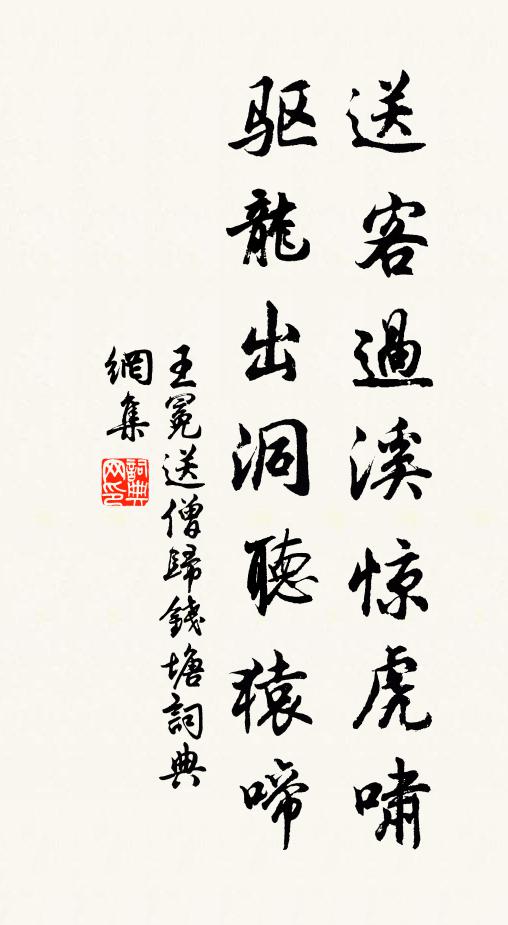 送客過溪惊虎嘯
驱龍出洞聴猿啼
王冕送僧歸錢塘詞典
網集
詞典
网印